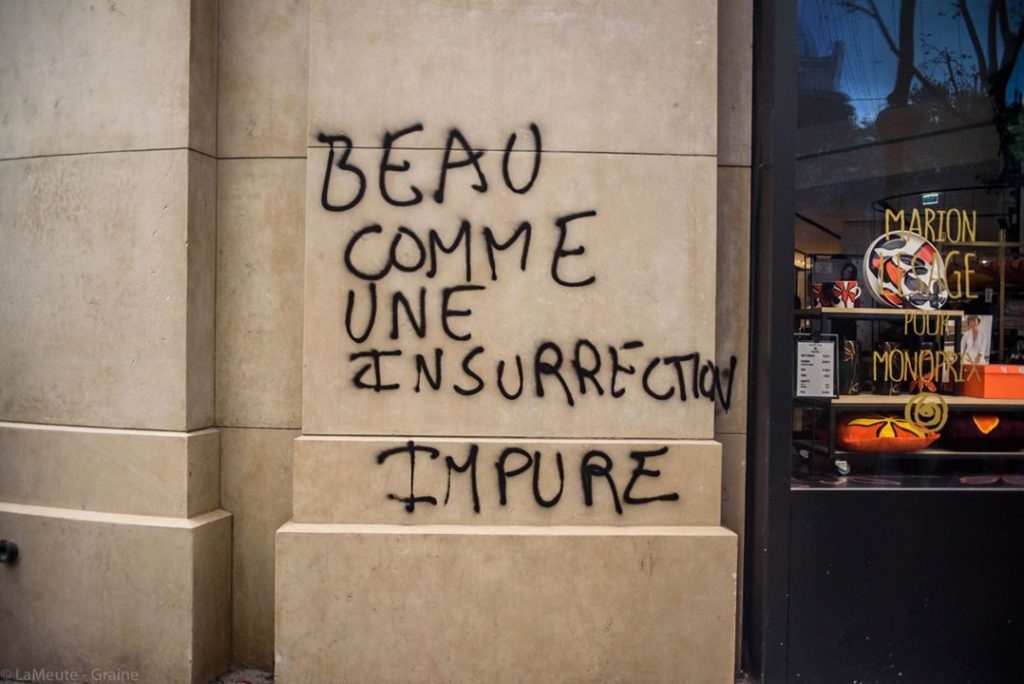 BEAU
COMME
UNE
INSURRECTION
IMPURE
MARION
LESAGE
POUR
MONOPRIX
© LaMeute - Graine